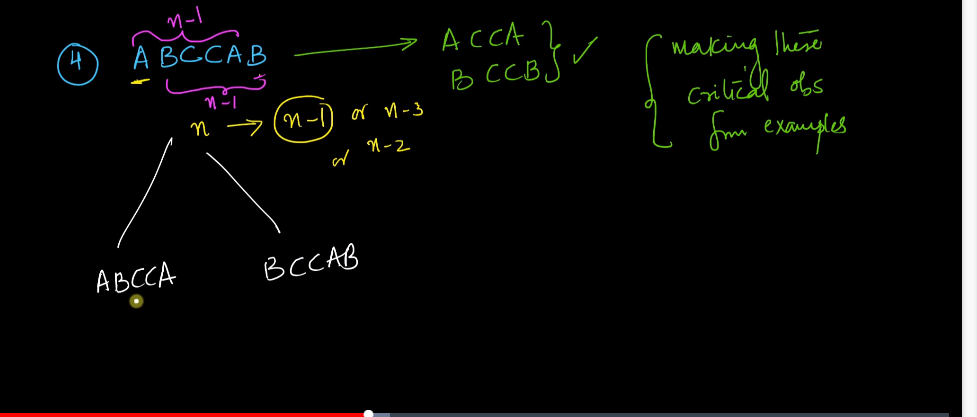 n-1
④ ABCCAB → ACCA
BCCB ✓
n-1
making these
critical obs
from examples
n → n-1 or n-3
or n-2
ABCCA BCCAB